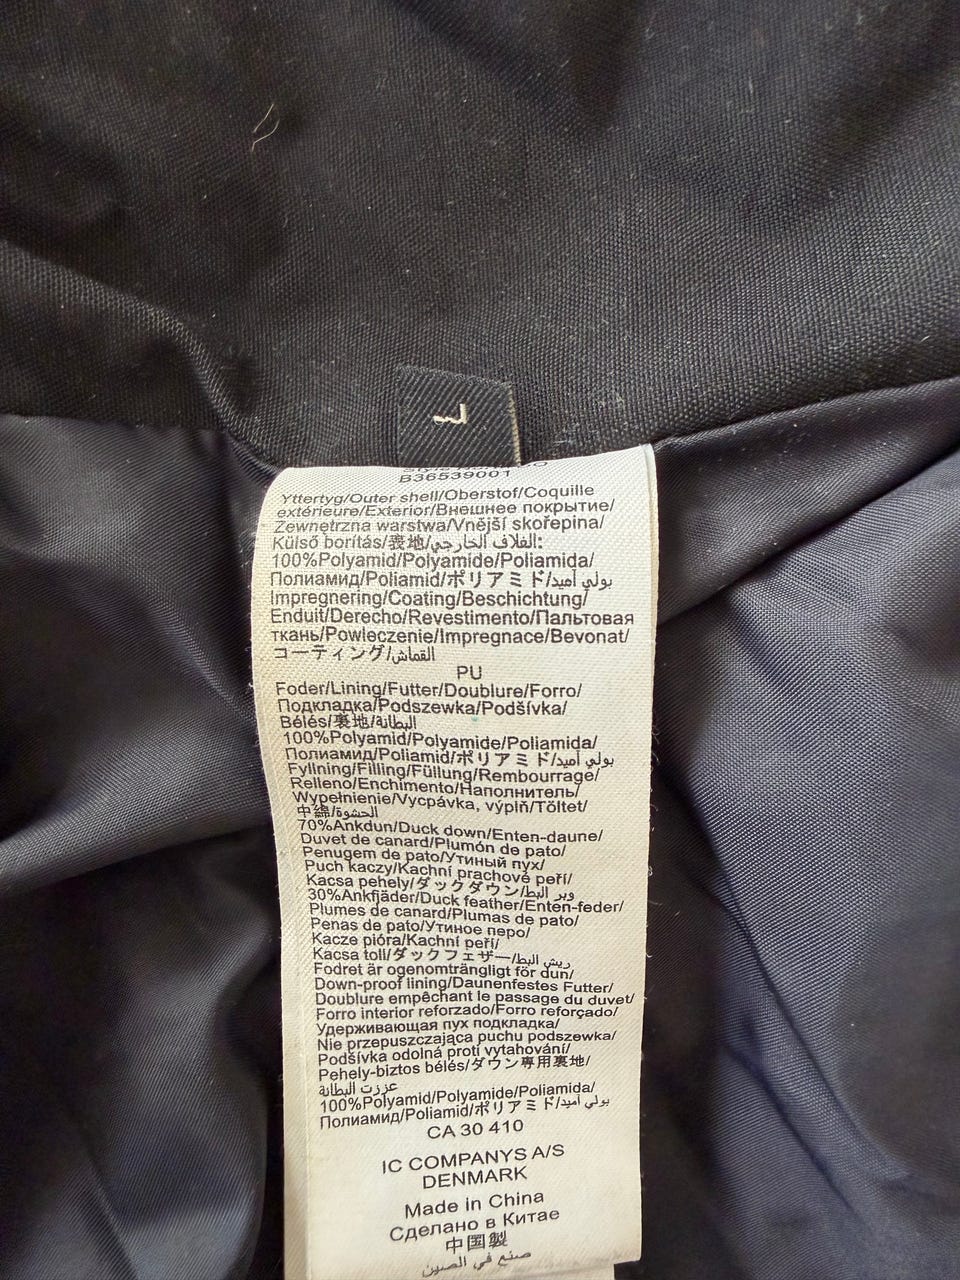 L
B36539001
Yttertyg/Outer shell/Oberstof/Coquille
extérieure/Exterior/Внешнее покрытие/
Zewnętrzna warstwa/Vnější skořepina/
Külső borítás/表地/الغلاف الخارجي:
100%Polyamid/Polyamide/Poliamida/
Полиамид/Poliamid/ポリアミド/بولي أميد
Impregnering/Coating/Beschichtung/
Enduit/Derecho/Revestimento/Пальтовая
ткань/Powleczenie/Impregnace/Bevonat/
コーティング/القماش
PU
Foder/Lining/Futter/Doublure/Forro/
Подкладка/Podszewka/Podšívka/
Bélés/裏地/البطانة
100%Polyamid/Polyamide/Poliamida/
Полиамид/Poliamid/ポリアミド/بولي أميد
Fyllning/Filling/Füllung/Rembourrage/
Relleno/Enchimento/Наполнитель/
Wypełnienie/Vycpávka, výplň/Töltet/
中綿/الحشوة
70%Ankdun/Duck down/Enten-daune/
Duvet de canard/Plumón de pato/
Penugem de pato/Утиный пух/
Puch kaczy/Kachní prachové peří/
Kacsa pehely/ダックダウン/وبر البط
30%Ankfjäder/Duck feather/Enten-feder/
Plumes de canard/Plumas de pato/
Penas de pato/Утиное перо/
Kacze pióra/Kachní peří/
Kacsa toll/ダックフェザー/ريش البط
Fodret är ogenomträngligt för dun/
Down-proof lining/Daunenfestes Futter/
Doublure empêchant le passage du duvet/
Forro interior reforzado/Forro reforçado/
Удерживающая пух подкладка/
Nie przepuszczająca puchu podszewka/
Podšívka odolná proti vytahování/
Pehely-biztos bélés/ダウン専用裏地/
عززت البطانة
100%Polyamid/Polyamide/Poliamida/
Полиамид/Poliamid/ポリアミド/بولي أميد
CA 30 410
IC COMPANYS A/S
DENMARK
Made in China
Сделано в Китае
中国製
صنع في الصين